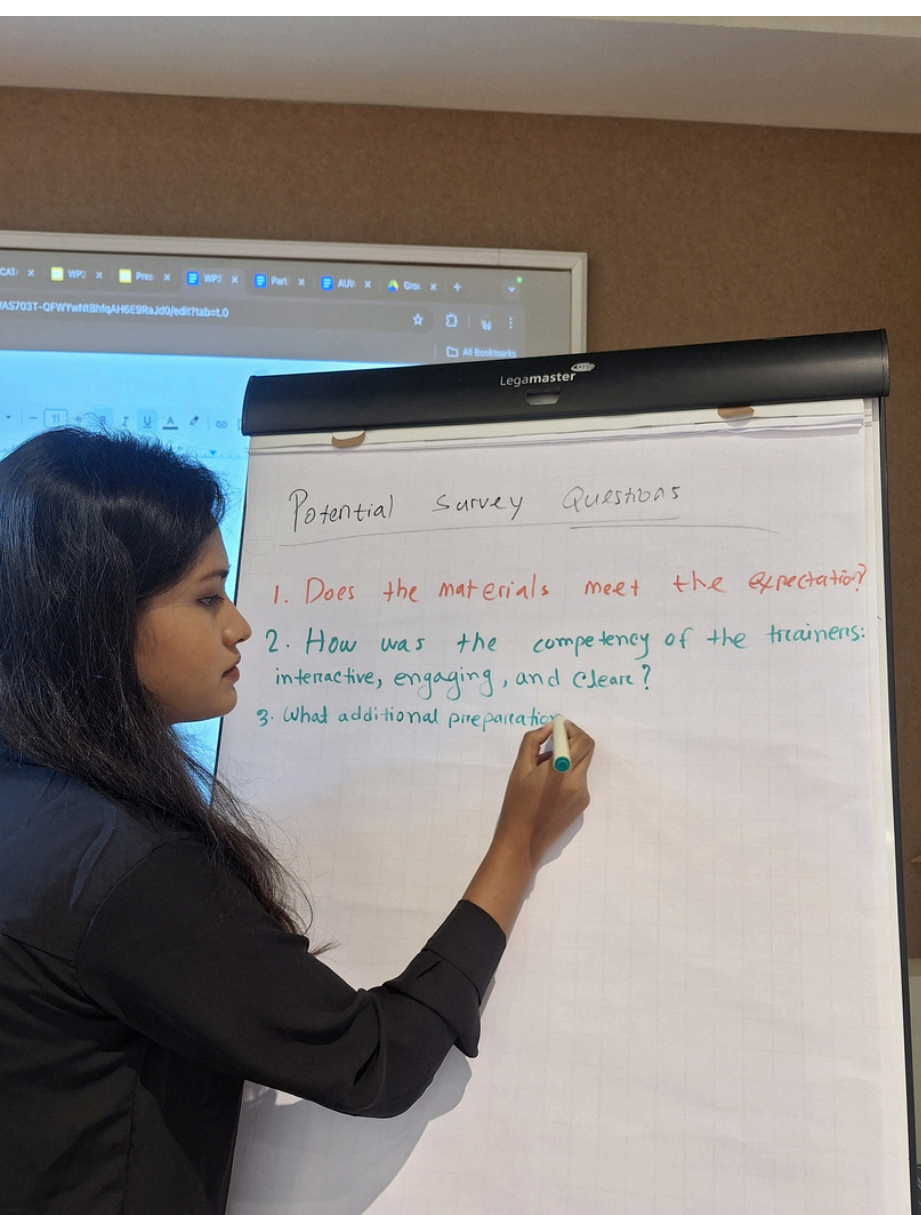 CAT/ WP2 Pres WP2 Part AUV Gro
/AS703T-QFWYwNtBhfqAH6E9RaJd0/edit?tab=t.0
All Bookmarks
11 B I U A
Legamaster
Potential Survey Questions
1. Does the materials meet the expectation?
2. How was the competency of the trainers:
interactive, engaging, and clear?
3. What additional preparation